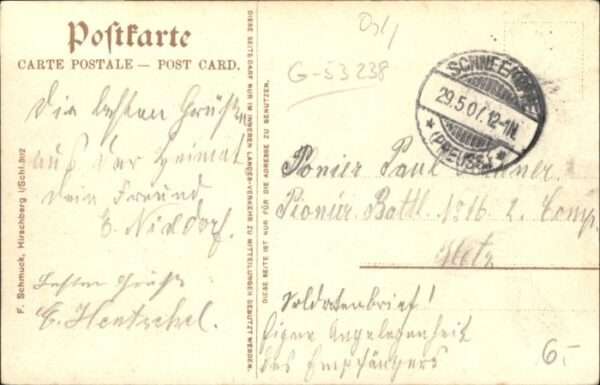 Postkarte
CARTE POSTALE — POST CARD.
Die besten Grüße
aus der Heimat
Dein Freund
E. Niddorf.
Besten Grüße
E. Hentschel.
F. Schmuck, Hirschberg i/Schl. 302
DIESE SEITE DARF NUR IM INNEREN LANDES-VERKEHR ZU MITTEILUNGEN BENUTZT WERDEN.
DIESE SEITE IST NUR FÜR DIE ADRESSE ZU BENUTZEN.
G-53238
SCHNEEKOPPE
29.5.07. 12-1N.
* (PREUSS.) *
Pionier Paul
Pionier. Batl. No 16 2. Comp.
Metz
Soldatenbrief!
Eigene Angelegenheit
des Empfängers
6.-